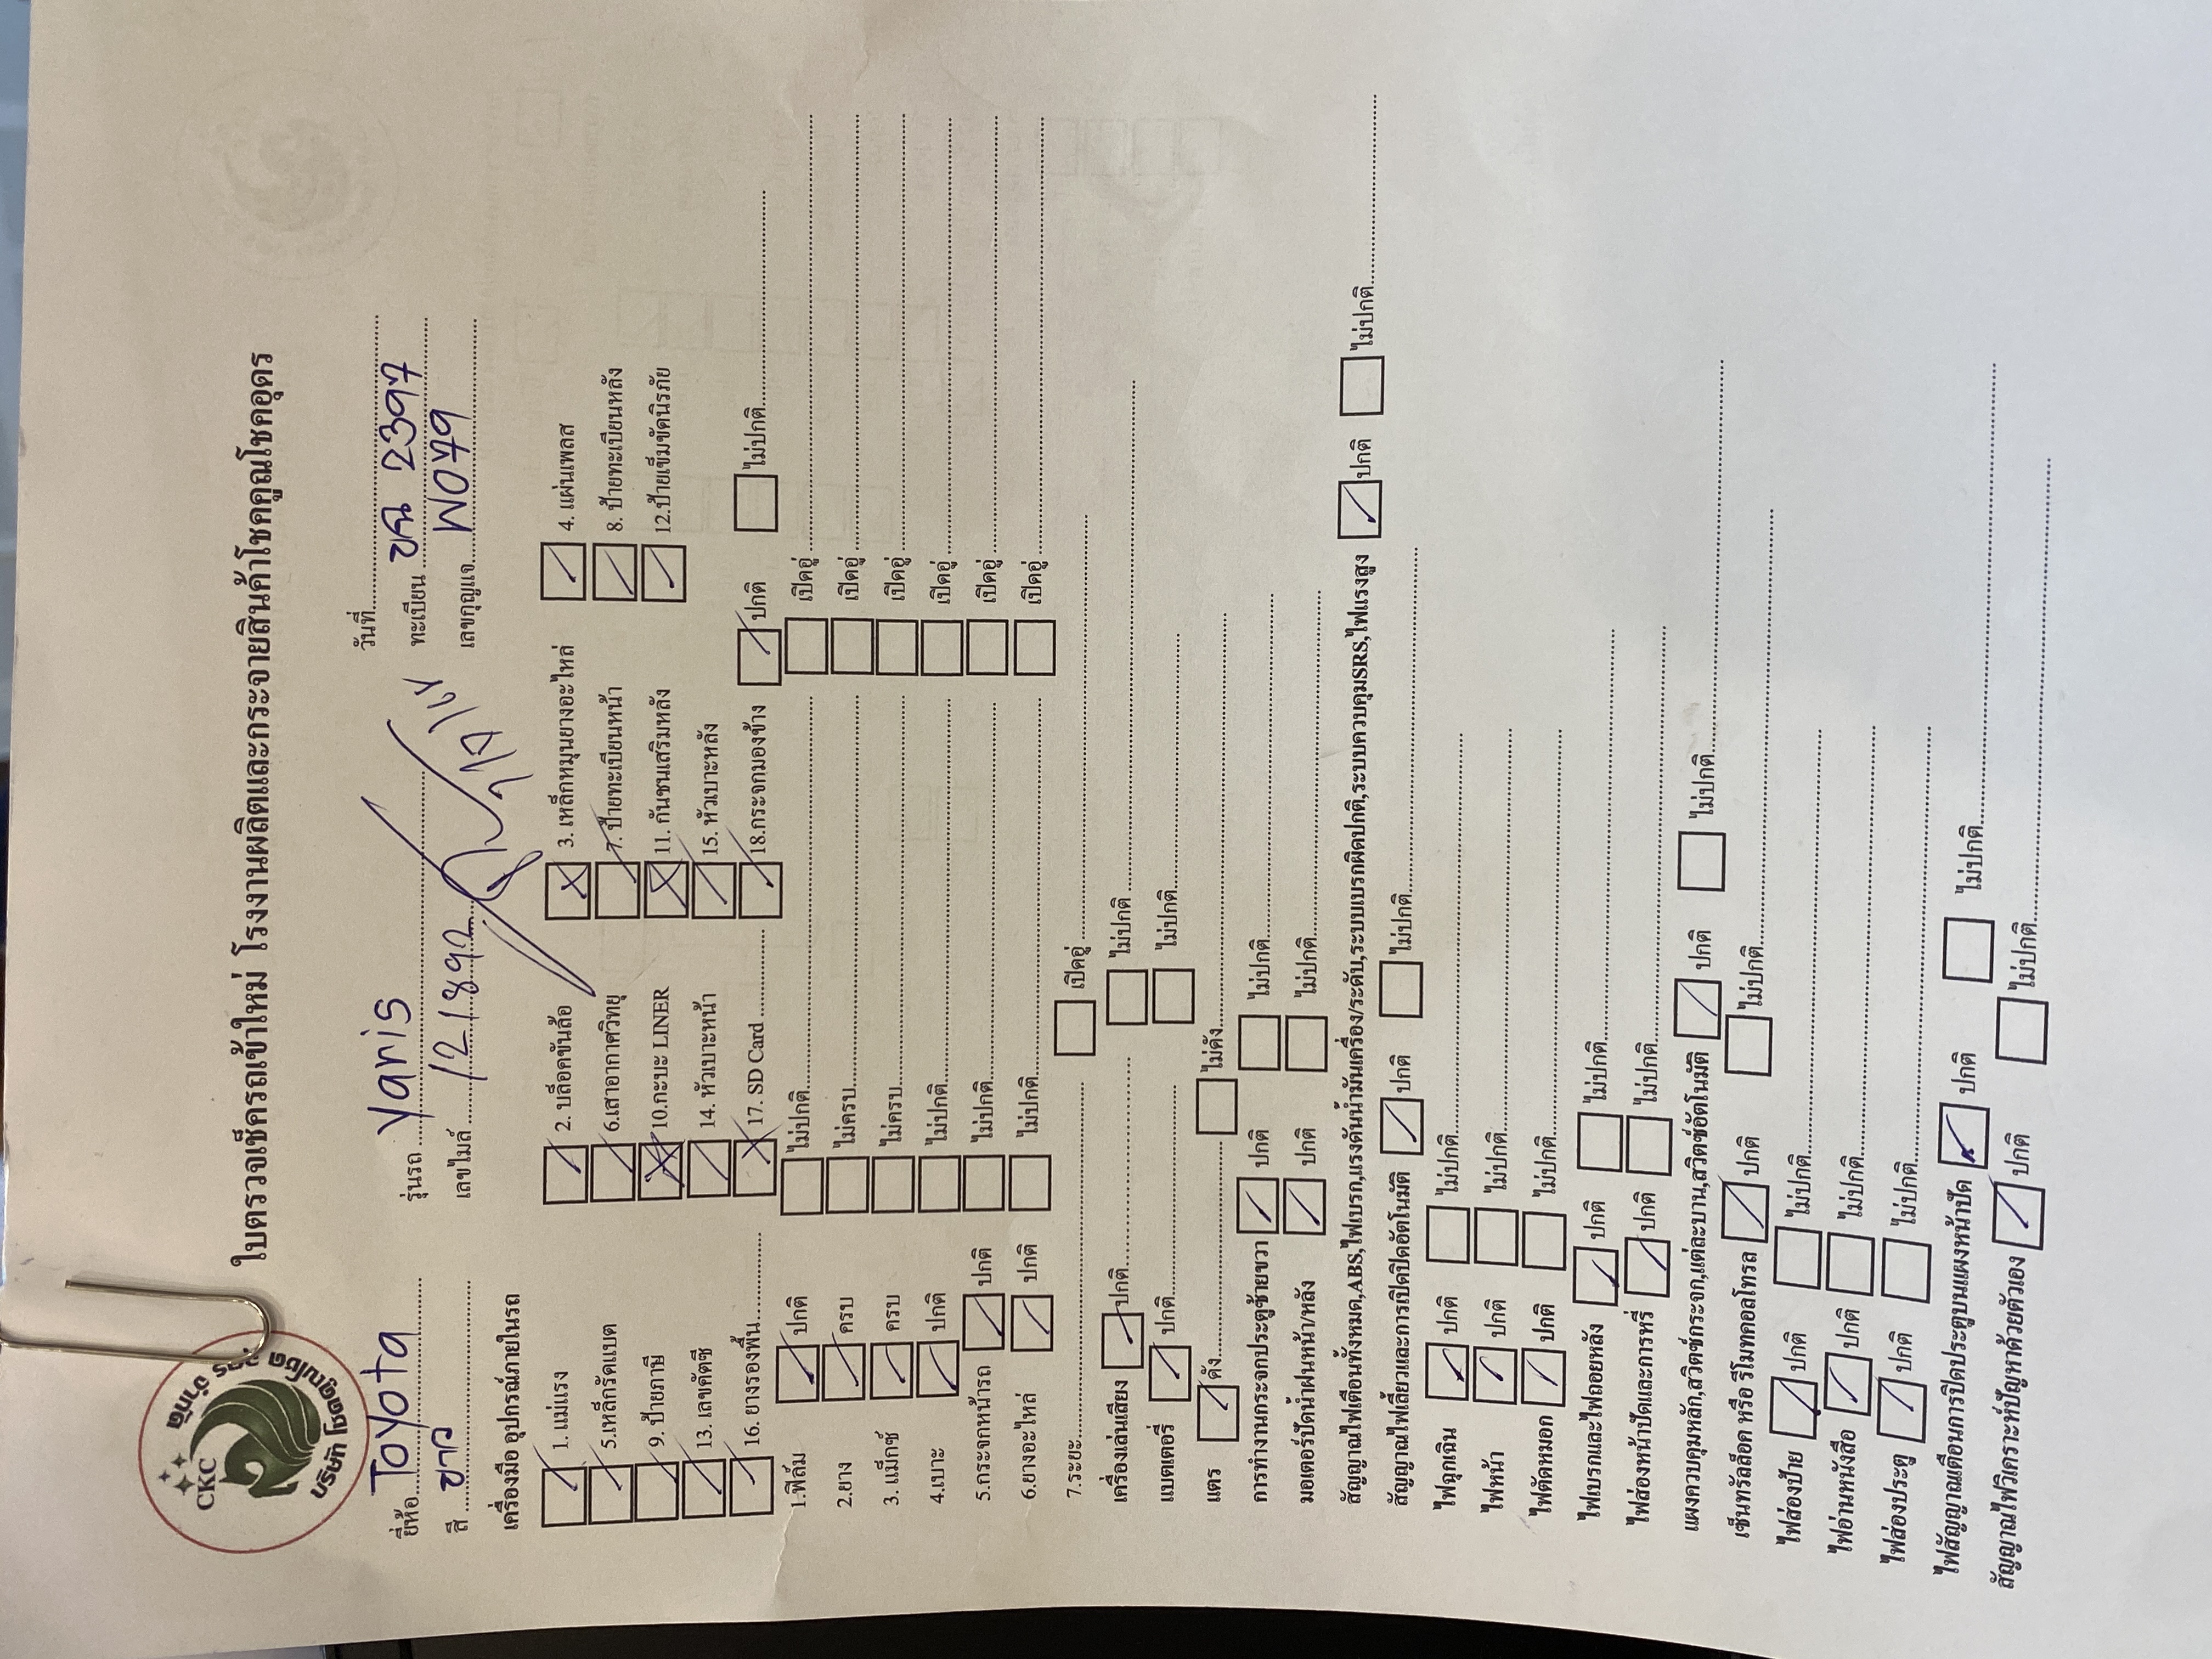 CKC
บริษัท โชคคูณโชค อุดร จำกัด
ใบตรวจเช็ครถเข้าใหม่ โรงงานผลิตและกระจายสินค้าโชคคูณโชคอุดร
วันที่
ยี่ห้อ Toyota รุ่นรถ Yaris ทะเบียน ขน 2397
สี ขาว เลขไมล์ 121892 เลขกุญแจ W079
เครื่องมือ อุปกรณ์ภายในรถ
1. แม่แรง 2. บล็อคขันล้อ 3. เหล็กหมุนยางอะไหล่ 4. แผ่นเพลส
5.เหล็กรัดแบต 6.เสาอากาศวิทยุ 7. ป้ายทะเบียนหน้า 8. ป้ายทะเบียนหลัง
9. ป้ายภาษี 10.กะบะ LINER 11. กันชนเสริมหลัง 12.ป้ายเข็มขัดนิรภัย
13. เลขคัตซี 14. หัวเบาะหน้า 15. หัวเบาะหลัง
16. ยางรองพื้น 17. SD Card 18.กระจกมองข้าง ปกติ ไม่ปกติ
1.ฟิล์ม ปกติ ไม่ปกติ เปิดอู่
2.ยาง ครบ ไม่ครบ เปิดอู่
3. แม็กซ์ ครบ ไม่ครบ เปิดอู่
4.เบาะ ปกติ ไม่ปกติ เปิดอู่
5.กระจกหน้ารถ ปกติ ไม่ปกติ เปิดอู่
6.ยางอะไหล่ ปกติ ไม่ปกติ เปิดอู่
7.ระยะ เปิดอู่
เครื่องเล่นเสียง ปกติ ไม่ปกติ
แบตเตอรี่ ปกติ ไม่ปกติ
แตร ดัง ไม่ดัง
การทำงานกระจกประตูซ้ายขวา ปกติ ไม่ปกติ
มอเตอร์ปัดน้ำฝนหน้า/หลัง ปกติ ไม่ปกติ
สัญญาณไฟเตือนทั้งหมด,ABS,ไฟเบรก,แรงดันน้ำมันเครื่อง/ระดับ,ระบบเบรกผิดปกติ,ระบบควบคุมSRS,ไฟแรงสูง ปกติ ไม่ปกติ
สัญญาณไฟเลี้ยวและการเปิดปิดอัตโนมัติ ปกติ ไม่ปกติ
ไฟฉุกเฉิน ปกติ ไม่ปกติ
ไฟหน้า ปกติ ไม่ปกติ
ไฟตัดหมอก ปกติ ไม่ปกติ
ไฟเบรกและไฟถอยหลัง ปกติ ไม่ปกติ
ไฟส่องหน้าปัดและการหรี่ ปกติ ไม่ปกติ
แผงควบคุมหลัก,สวิตซ์กระจก,แต่ละบาน,สวิตซ์อัตโนมัติ ปกติ ไม่ปกติ
เซ็นทรัลล็อค หรือ รีโมทคอลโทรล ปกติ ไม่ปกติ
ไฟส่องป้าย ปกติ ไม่ปกติ
ไฟอ่านหนังสือ ปกติ ไม่ปกติ
ไฟส่องประตู ปกติ ไม่ปกติ
ไฟสัญญาณเตือนการปิดประตูบนแผงหน้าปัด ปกติ ไม่ปกติ
สัญญาณไฟวิเคราะห์ปัญหาด้วยตัวเอง ปกติ ไม่ปกติ